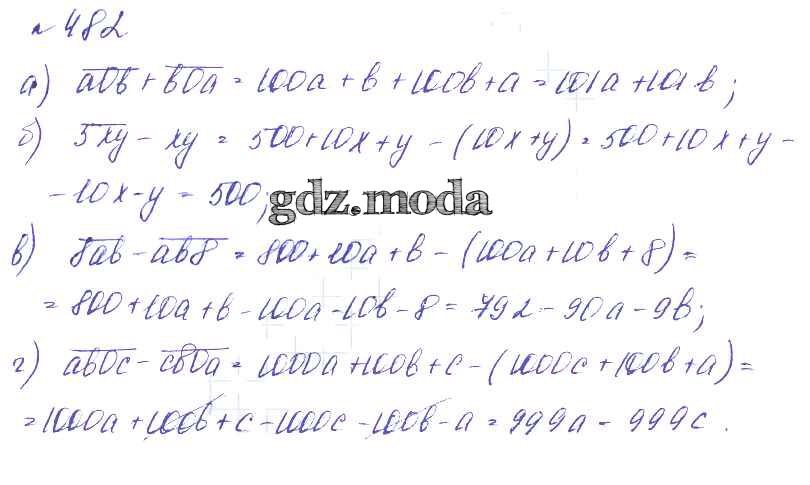 № 482
а) a0b + b0a = 100a + b + 100b + a = 101a + 101b;
б) 5xy - xy = 500 + 10x + y - (10x + y) = 500 + 10x + y -
- 10x - y = 500;
gdz.moda
в) 8ab - ab8 = 800 + 10a + b - (100a + 10b + 8) =
= 800 + 10a + b - 100a - 10b - 8 = 792 - 90a - 9b;
г) ab0c - cb0a = 1000a + 100b + c - (1000c + 100b + a) =
= 1000a + 100b + c - 1000c - 100b - a = 999a - 999c.